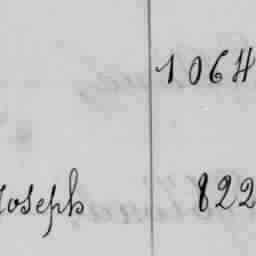 1064
Joseph 822